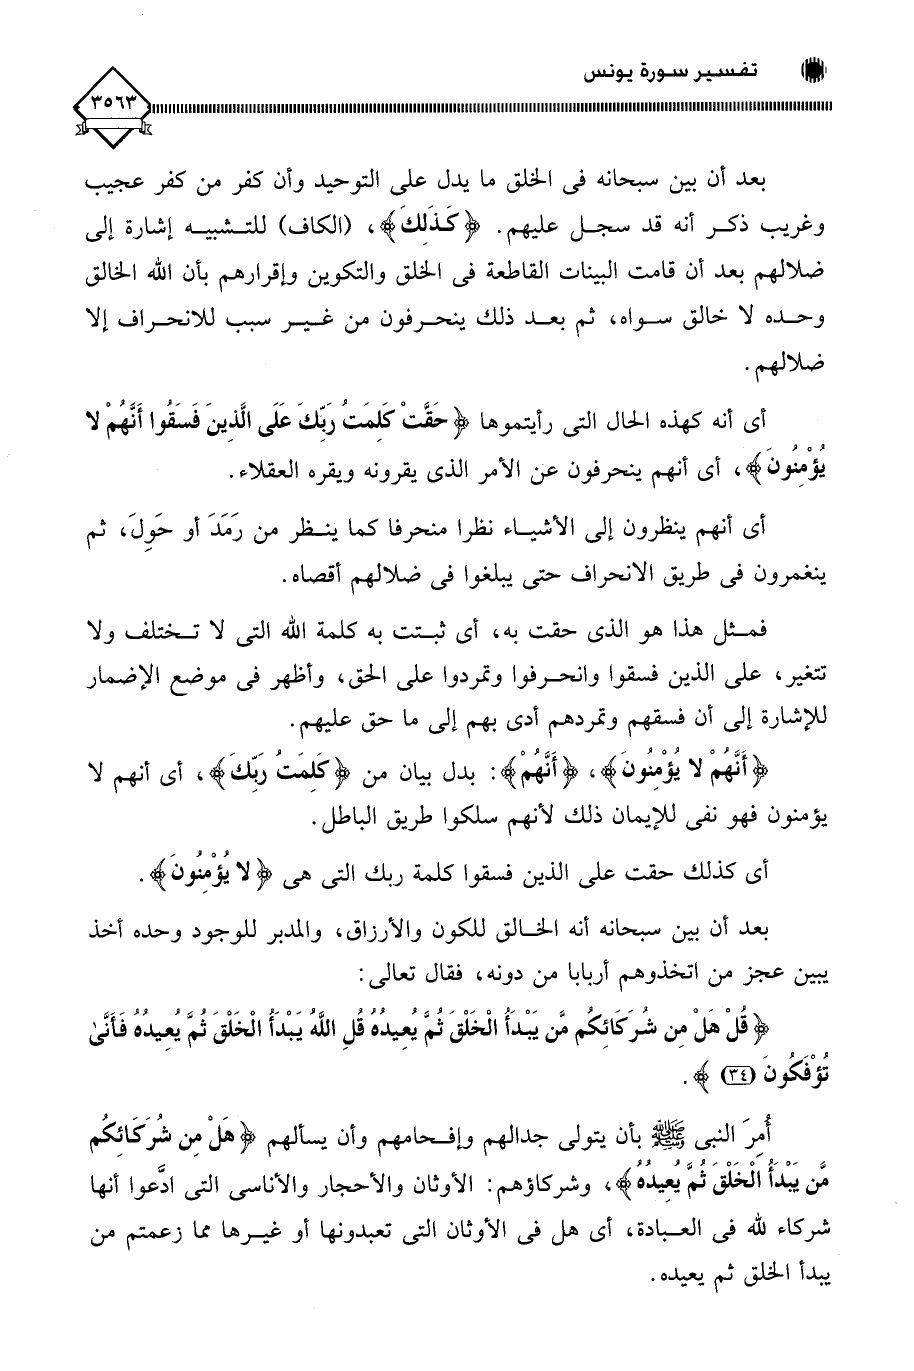 تفسير سورة يونس
٣٥٦٣
بعد أن بين سبحانه فى الخلق ما يدل على التوحيد وأن كفر من كفر عجيب
وغريب ذكر أنه قد سجل عليهم. ﴿كَذَلِكَ﴾، (الكاف) للتشبيه إشارة إلى
ضلالهم بعد أن قامت البينات القاطعة فى الخلق والتكوين وإقرارهم بأن الله الخالق
وحده لا خالق سواه، ثم بعد ذلك ينحرفون من غير سبب للانحراف إلا
ضلالهم.
أى أنه كهذه الحال التى رأيتموها ﴿حَقَّتْ كَلِمَتُ رَبِّكَ عَلَى الَّذِينَ فَسَقُوا أَنَّهُمْ لا
يُؤْمِنُونَ﴾، أى أنهم ينحرفون عن الأمر الذى يقرونه ويقره العقلاء.
أى أنهم ينظرون إلى الأشياء نظرا منحرفا كما ينظر من رَمَدَ أو حَوِلَ، ثم
ينغمرون فى طريق الانحراف حتى يبلغوا فى ضلالهم أقصاه.
فمثل هذا هو الذى حقت به، أى ثبتت به كلمة الله التى لا تختلف ولا
تتغير، على الذين فسقوا وانحرفوا وتمردوا على الحق، وأظهر فى موضع الإضمار
للإشارة إلى أن فسقهم وتمردهم أدى بهم إلى ما حق عليهم.
﴿أَنَّهُمْ لا يُؤْمِنُونَ﴾، ﴿أَنَّهُمْ﴾: بدل بيان من ﴿كَلِمَتُ رَبِّكَ﴾، أى أنهم لا
يؤمنون فهو نفى للإيمان ذلك لأنهم سلكوا طريق الباطل.
أى كذلك حقت على الذين فسقوا كلمة ربك التى هى ﴿لا يُؤْمِنُونَ﴾.
بعد أن بين سبحانه أنه الخالق للكون والأرزاق، والمدبر للوجود وحده أخذ
يبين عجز من اتخذوهم أربابا من دونه، فقال تعالى:
﴿قُلْ هَلْ مِن شُرَكَائِكُم مَّن يَبْدَأُ الْخَلْقَ ثُمَّ يُعِيدُهُ قُلِ اللَّهُ يَبْدَأُ الْخَلْقَ ثُمَّ يُعِيدُهُ فَأَنَّىٰ
تُؤْفَكُونَ (٣٤)﴾.
أُمِرَ النبى ﷺ بأن يتولى جدالهم وإفحامهم وأن يسألهم ﴿هَلْ مِن شُرَكَائِكُم
مَّن يَبْدَأُ الْخَلْقَ ثُمَّ يُعِيدُهُ﴾، وشركاؤهم: الأوثان والأحجار والأناسى التى ادَّعوا أنها
شركاء لله فى العبادة، أى هل فى الأوثان التى تعبدونها أو غيرها مما زعمتم من
يبدأ الخلق ثم يعيده.